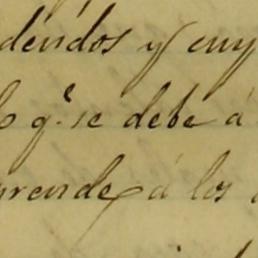 déndos y cuy
lo q.e se debe á
prende á los